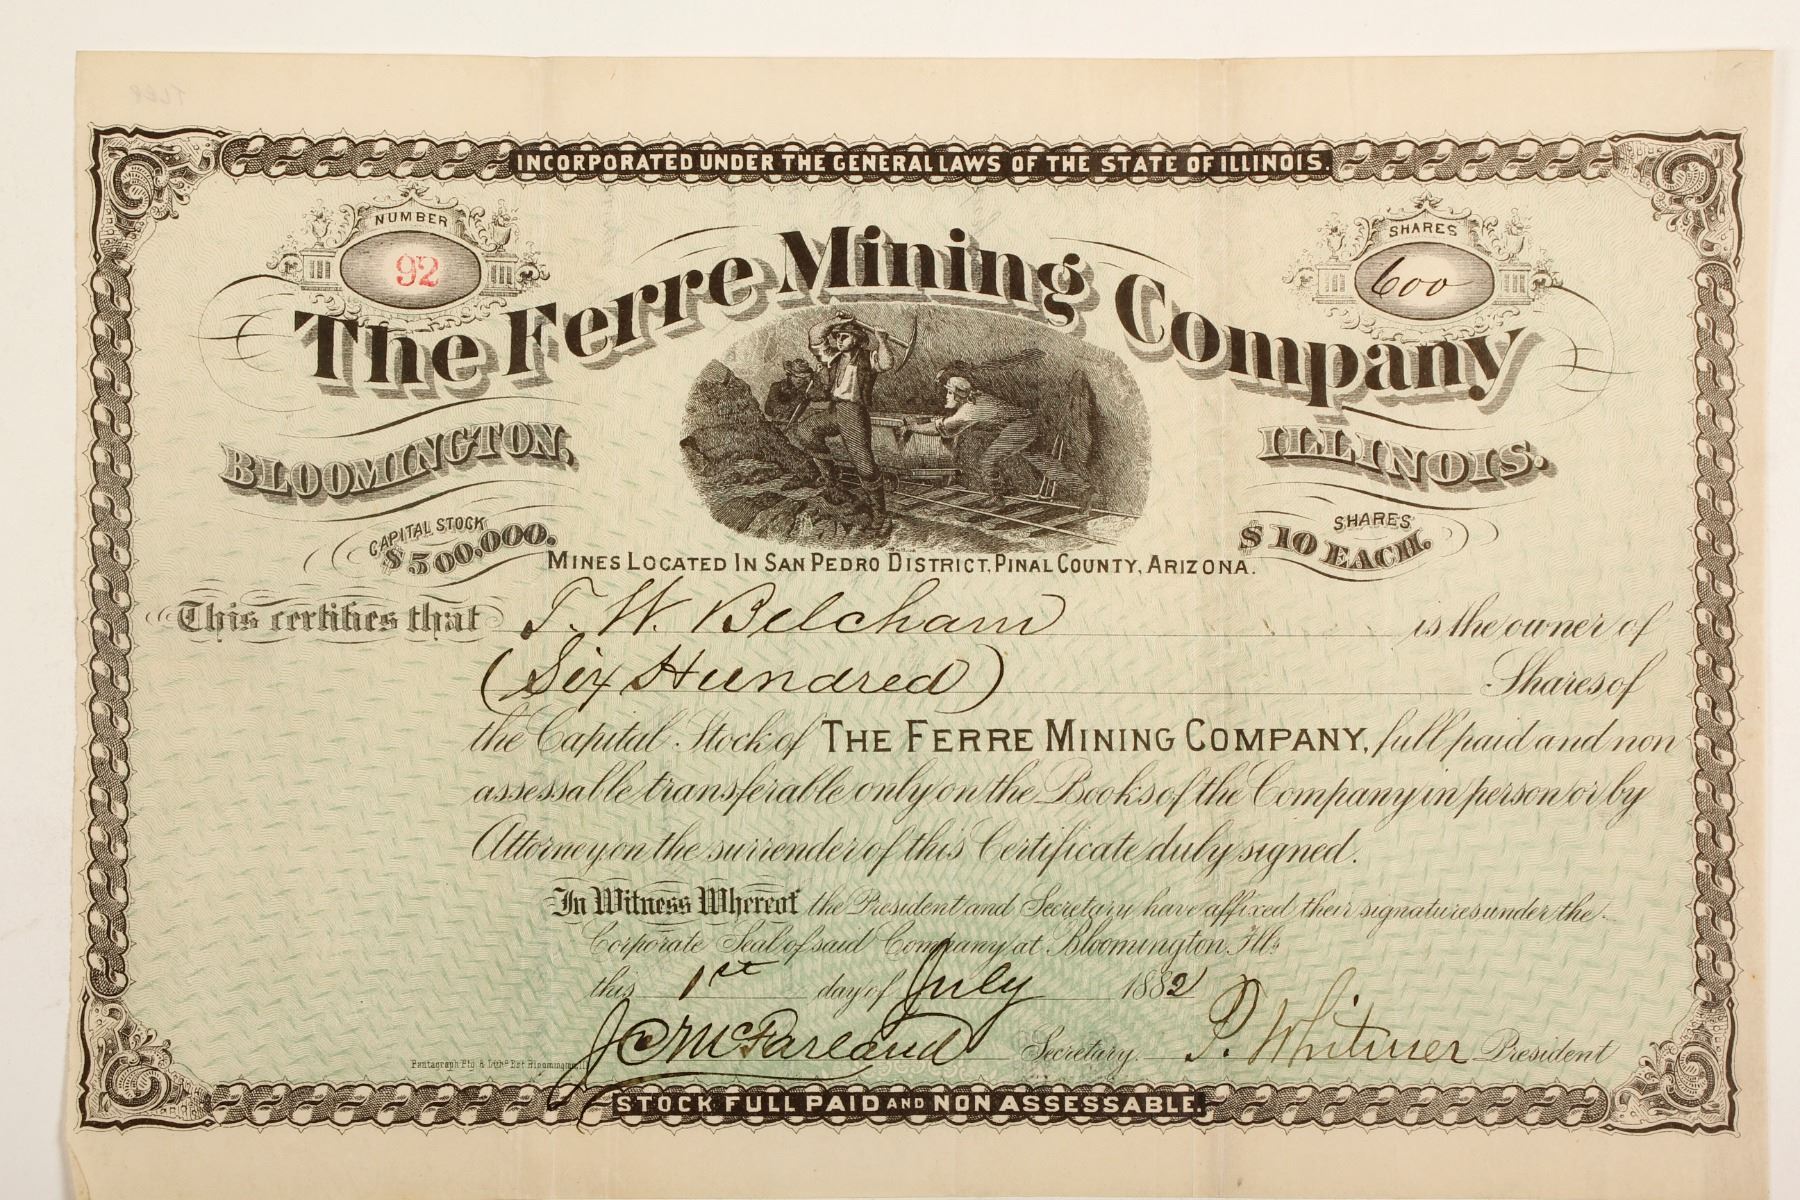 INCORPORATED UNDER THE GENERAL LAWS OF THE STATE OF ILLINOIS.
NUMBER
92
SHARES
600
The Ferre Mining Company
BLOOMINGTON, ILLINOIS.
CAPITAL STOCK
$500,000.
SHARES
$10 EACH.
MINES LOCATED IN SAN PEDRO DISTRICT, PINAL COUNTY, ARIZONA.
This certifies that T. W. Belcham is the owner of
(Six Hundred) Shares of
the Capital Stock of THE FERRE MINING COMPANY, full paid and non
assessable transferable only on the Books of the Company in person or by
Attorney on the surrender of this Certificate duly signed.
In Witness Whereof the President and Secretary have affixed their signatures under the
Corporate Seal of said Company at Bloomington, Ills
this 1st day of July 1882
J C McFarland Secretary. P. Whitmer President
Pantagraph Ptg & Litho Est Bloomington, Ill
STOCK FULL PAID AND NON ASSESSABLE.